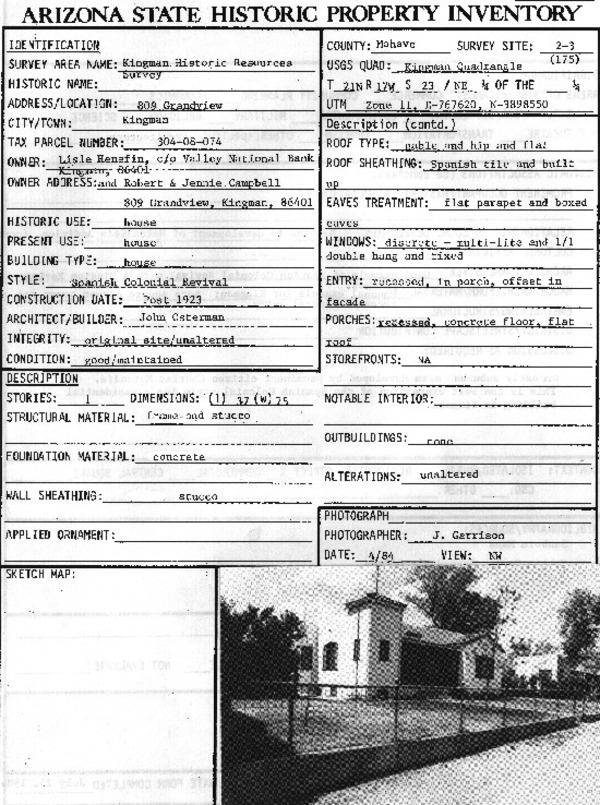 ARIZONA STATE HISTORIC PROPERTY INVENTORY
IDENTIFICATION
SURVEY AREA NAME: Kingman Historic Resources
Survey
HISTORIC NAME:
ADDRESS/LOCATION: 809 Grandview
CITY/TOWN: Kingman
TAX PARCEL NUMBER: 304-08-074
OWNER: Lisle c/o Valley National Bank
Kingman, 86401
OWNER ADDRESS: and Robert & Jennie Campbell
809 Grandview, Kingman, 86401
HISTORIC USE: house
PRESENT USE: house
BUILDING TYPE: house
STYLE: Spanish Colonial Revival
CONSTRUCTION DATE: Post 1923
ARCHITECT/BUILDER: John Osterman
INTEGRITY: original site/unaltered
CONDITION: good/maintained
COUNTY: Mohave SURVEY SITE: 2-3
(175)
USGS QUAD: Kingman Quadrangle
T 21N R 17W S 23 / NE ¼ OF THE ¼
UTM Zone 11, E-767620, N-3898550
Description (contd.)
ROOF TYPE: gable and hip and flat
ROOF SHEATHING: Spanish tile and built
up
EAVES TREATMENT: flat parapet and boxed
eaves
WINDOWS: discrete - multi-lite and 1/1
double hung and fixed
ENTRY: recessed, in porch, offset in
facade
PORCHES: recessed, concrete floor, flat
roof
STOREFRONTS: NA
DESCRIPTION
STORIES: 1 DIMENSIONS: (l) 37 (W) 75
STRUCTURAL MATERIAL: frame and stucco
FOUNDATION MATERIAL: concrete
WALL SHEATHING: stucco
APPLIED ORNAMENT:
NOTABLE INTERIOR:
OUTBUILDINGS: none
ALTERATIONS: unaltered
PHOTOGRAPH
PHOTOGRAPHER: J. Garrison
DATE: 4/84 VIEW: NW
SKETCH MAP: